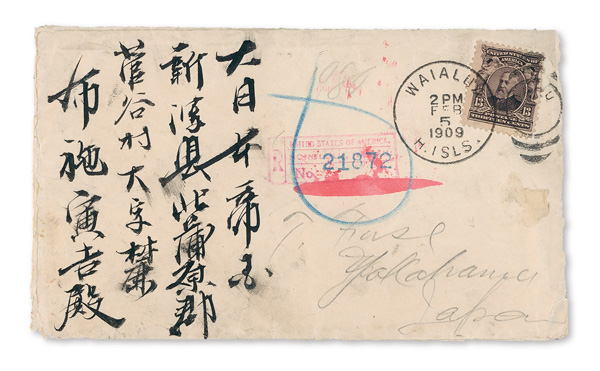 大日本帝国
新潟県北蒲原郡
菅谷村大字麓
布施寅吉殿
UNITED STATES OF AMERICA
R
No.
21872
WAIALUA
2PM
FEB
5
1909
H.ISLS.
13
13
THIRTEEN CENTS
T. Fuse
Yokohama
Japan